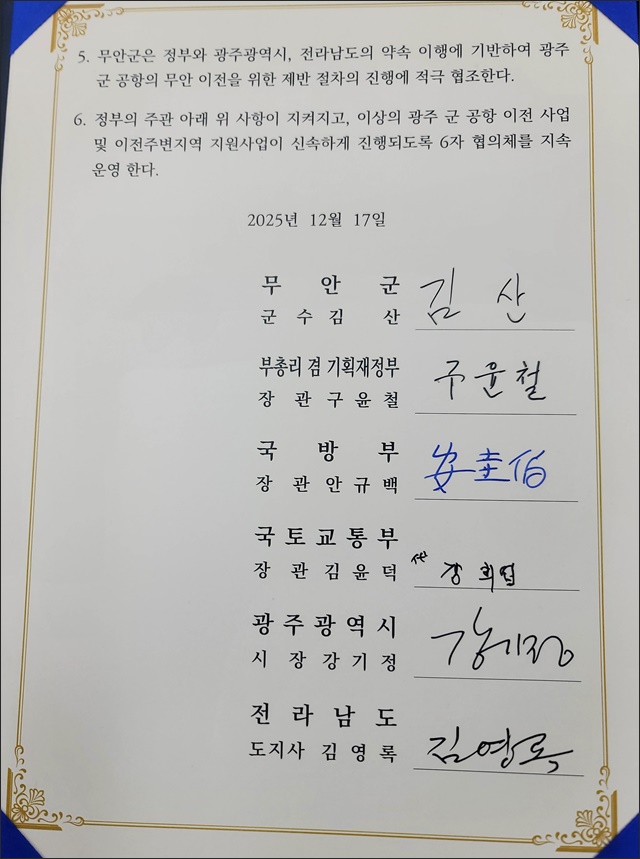 5. 무안군은 정부와 광주광역시, 전라남도의 약속 이행에 기반하여 광주
군 공항의 무안 이전을 위한 제반 절차의 진행에 적극 협조한다.
6. 정부의 주관 아래 위 사항이 지켜지고, 이상의 광주 군 공항 이전 사업
및 이전주변지역 지원사업이 신속하게 진행되도록 6자 협의체를 지속
운영 한다.
2025년 12월 17일
무 안 군
군 수 김 산 김 산
부총리 겸 기획재정부
장 관 구 윤 철 구윤철
국 방 부
장 관 안 규 백 安圭伯
국 토 교 통 부
장 관 김 윤 덕 代
광 주 광 역 시
시 장 강 기 정 강기정
전 라 남 도
도지사 김 영 록 김영록